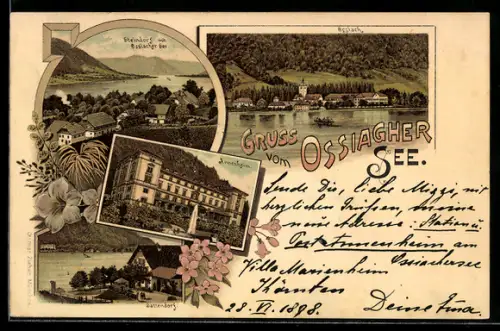 Steindorf am
Ossiacher See
Ossiach.
GRUSS
vom OSSIACHER
SEE.
Annenheim
Sattendorf.
Sende Dir, liebe Mizzi, mit
herzlichen Grüssen, meine
neue Adresse: Station u.
Post Annenheim am
Villa Marienheim Ossiachersee
Kärnten
28. VI. 1898.